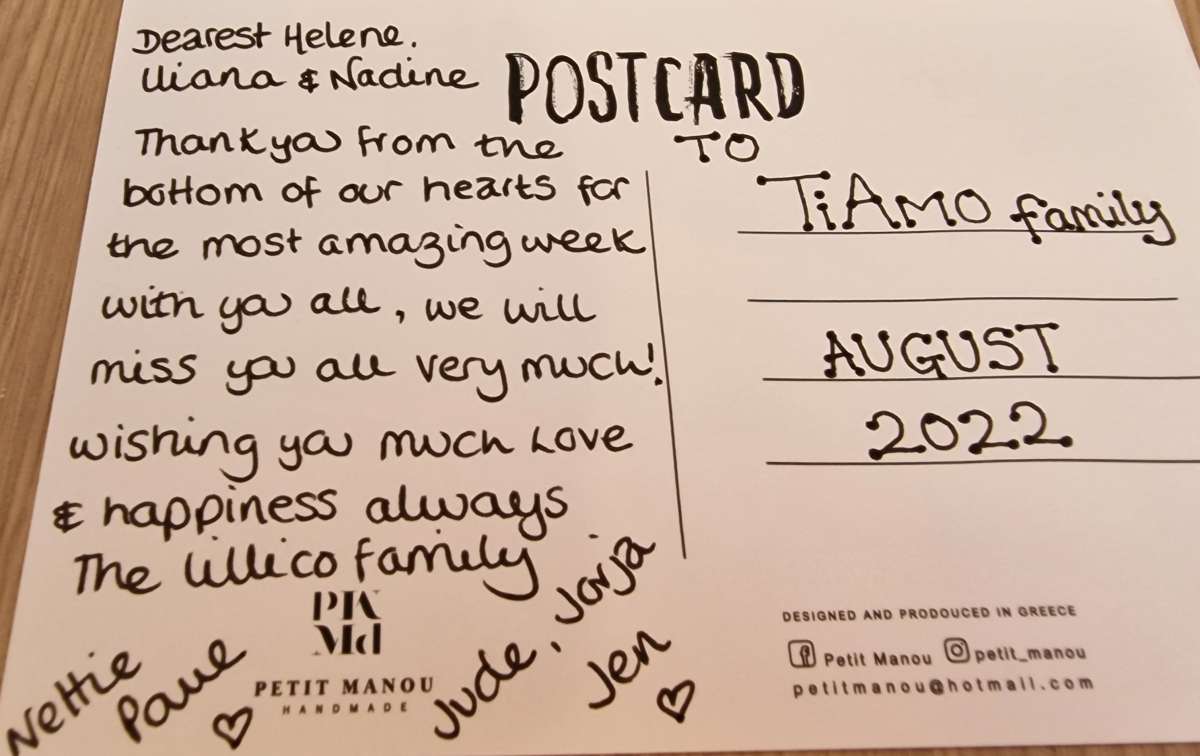 Dearest Helene.
Uiana & Nadine
Thank you from the
bottom of our hearts for
the most amazing week
with you all, we will
miss you all very much!
wishing you much Love
& happiness always
The Lillico family
Nettie
Paul
Jude, Jorja
Jen
PETIT MANOU
HANDMADE
POSTCARD
TO
TiAMO family
AUGUST
2022
DESIGNED AND PRODOUCED IN GREECE
Petit Manou petit_manou
petitmanou@hotmail.com